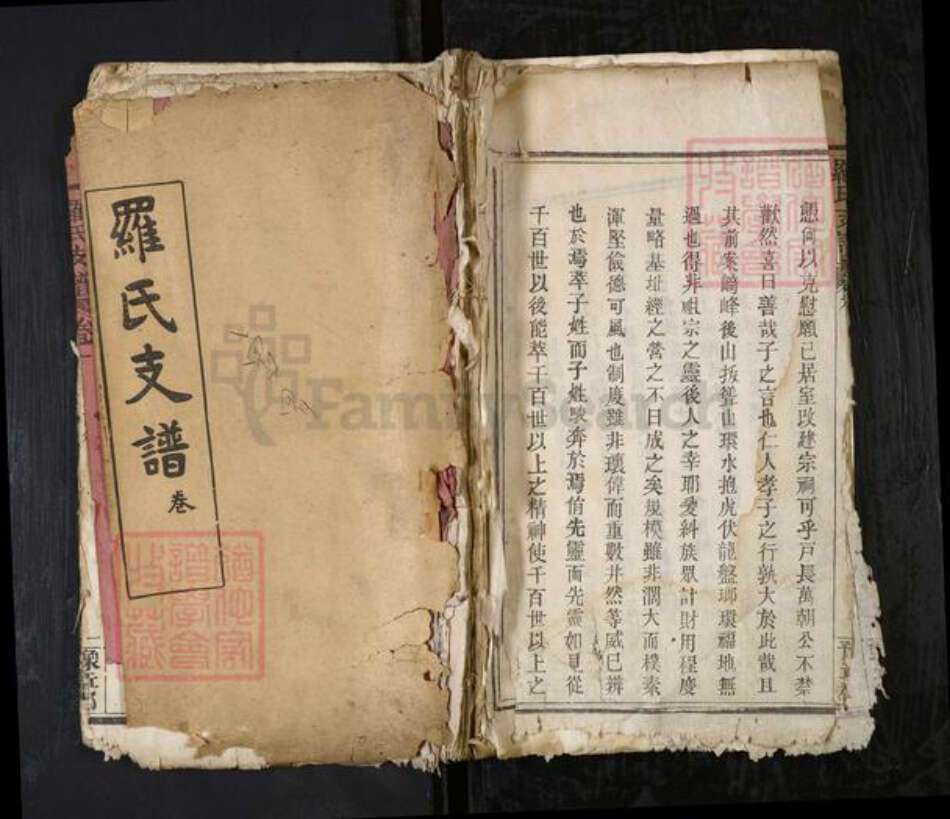 羅氏支譜
卷
豫章郡
FamilySearch
愿何以克慰願己居室改建宗祠可乎戸長萬朝公不禁
歡然喜曰善哉子之言也仁人孝子之行孰大於此哉且
其前案 峰後山 聳山環水抱虎伏龍盤瑯環福地無
過也得非祖宗之靈後人之幸耶爰糾族眾計財用程度
量略基址經之營之不日成之矣規模雖非濶大而樸素
渾堅儉德可風也制度雖非瓌偉而重數井然等威已辨
也於焉萃子姓而子姓駿奔於焉侑先靈而先靈如見從
千百世以後能萃千百世以上之精神使千百世以上之